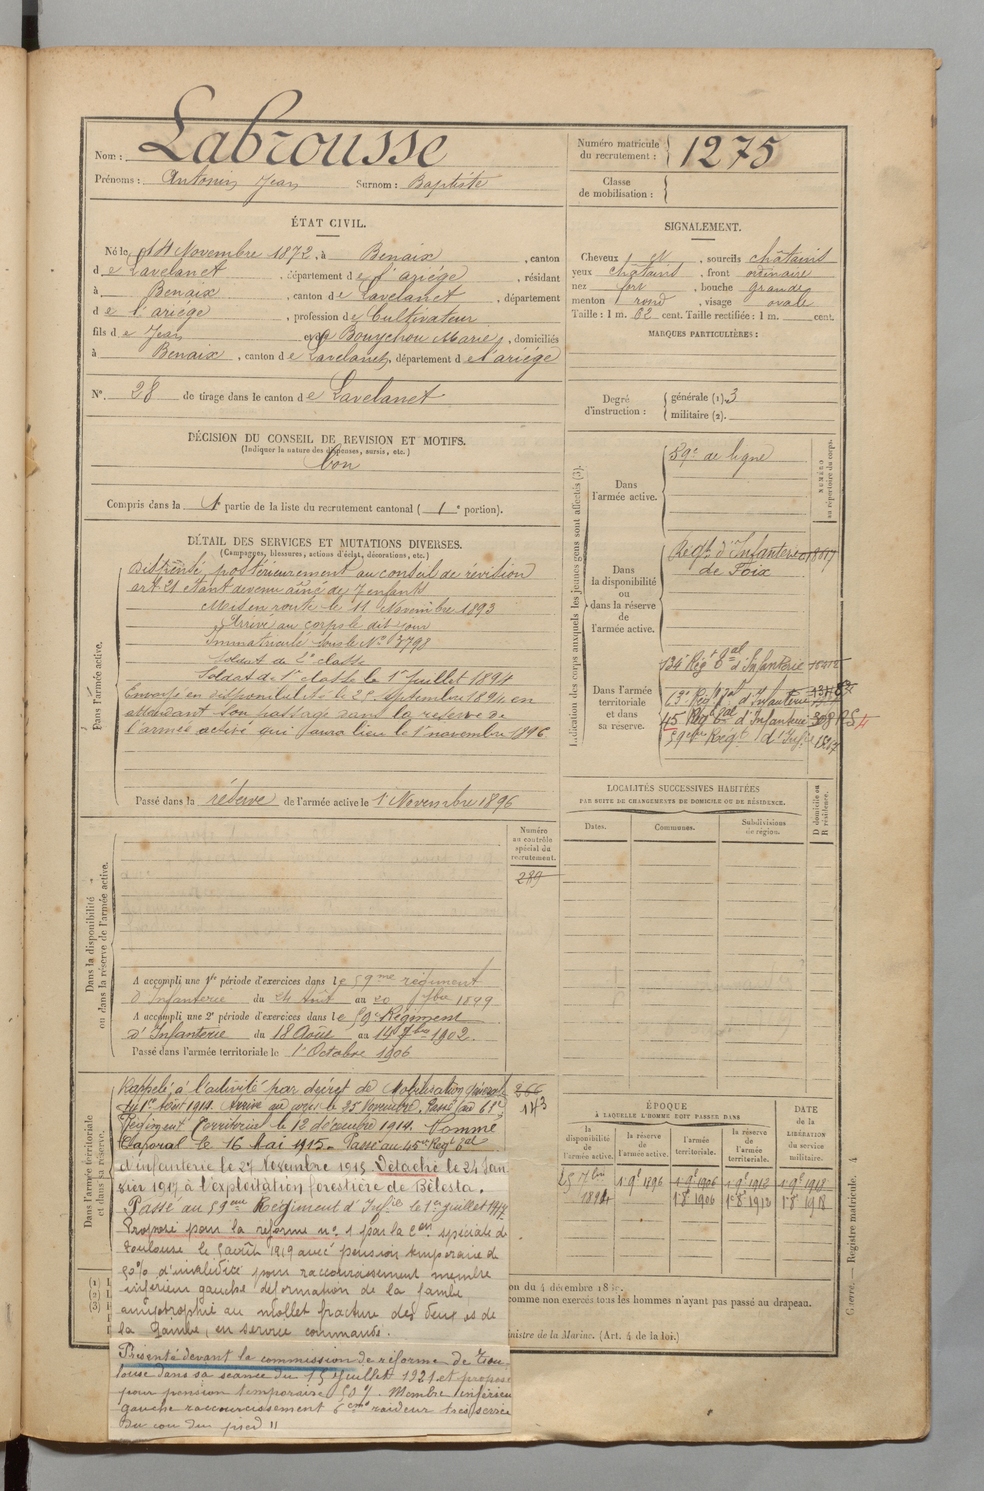 Nom : Labrousse
Prénoms : Antonin Jean Surnom : Baptiste
Numéro matricule du recrutement : 1275
Classe de mobilisation :
ÉTAT CIVIL.
Né le 14 Novembre 1872, à Benaix, canton
de Lavelanet, département de l'ariége, résidant
à Benaix, canton de Lavelanet, département
de l'ariége, profession de Cultivateur
fils de Jean et de Bouychou Marie, domiciliés
à Benaix, canton de Lavelanet, département de l'ariége
N° 28 de tirage dans le canton de Lavelanet
SIGNALEMENT.
Cheveux , sourcils châtains
yeux châtains, front ordinaire
nez fort, bouche grande
menton rond, visage ovale
Taille : 1 m. 62 cent. Taille rectifiée : 1 m. cent.
MARQUES PARTICULIÈRES :
Degré d'instruction : générale (1). 3
militaire (2).
DÉCISION DU CONSEIL DE REVISION ET MOTIFS.
(Indiquer la nature des dispenses, sursis, etc.)
bon
Compris dans la 1e partie de la liste du recrutement cantonal ( 1e portion).
DÉTAIL DES SERVICES ET MUTATIONS DIVERSES.
(Campagnes, blessures, actions d'éclat, décorations, etc.)
Dans l'armée active.
Dispensé postérieurement au conseil de révision
art. 21 étant devenu aîné de 7 enfants
Mis en route le 11 Novembre 1893
Arrivé au corps le dit jour
Immatriculé sous le No 3798
Soldat de 2e classe
Soldat de 1e classe le 1er Juillet 1894
Envoyé en disponibilité le 25 septembre 1894 en
attendant son passage dans la réserve de
l'armée active qui aura lieu le 1er novembre 1896
Passé dans la réserve de l'armée active le 1er Novembre 1896
Indication des corps auxquels les jeunes gens sont affectés (3).
NUMÉRO au répertoire du corps.
Dans l'armée active.
59e de ligne
Dans la disponibilité ou dans la réserve de l'armée active.
Regt. d'Infanterie
de Foix
Dans l'armée territoriale et dans sa réserve.
134e Régt tal d'Infanterie
d'Infanterie
45 Régt tal d'Infanterie
59eme Régt d'Infie
LOCALITÉS SUCCESSIVES HABITÉES
PAR SUITE DE CHANGEMENTS DE DOMICILE OU DE RÉSIDENCE.
Dates. Communes. Subdivisions de région. D domicile ou R résidence.
Dans la disponibilité ou dans la réserve de l'armée active.
Numéro au contrôle spécial du recrutement.
289
A accompli une 1re période d'exercices dans le 59me régiment
d'Infanterie du 24 Août au 20 7bre 1899
A accompli une 2e période d'exercices dans le 59e Régiment
d'Infanterie du 18 Août au 14 7bre 1902.
Passé dans l'armée territoriale le 1er Octobre 1906
Dans l'armée territoriale et dans sa réserve.
266
143
Rappelé à l'activité par décret de Mobilisation générale
du 1er Août 1914. Arrivé au corps le 25 Novembre. Passé au
Régiment Territorial le 12 décembre 1914. Nommé
Caporal le 16 Mai 1915. Passé au 45e Régt tal
d'infanterie le 27 Novembre 1915 Détaché le 24 Jan
vier 1917 à l'exploitation forestière de Bélesta.
Passé au 59eme Régiment d'Infie le 1er juillet 1917
Proposé pour la réforme n° 1 par la Con spéciale de
Toulouse le 5 août 1919 avec pension temporaire de
50% d'invalidité pour raccourcissement membre
inférieur gauche déformation de la jambe
amyotrophie au mollet fracture des deux os de
la jambe, en service commandé.
Présenté devant la commission de réforme de Tou
louse dans sa séance du 15 juillet 1921 et proposé
pour pension temporaire 50%. Membre inférieur
gauche raccourcissement 6 cm raideur très serrée
du cou du pied "
ÉPOQUE
À LAQUELLE L'HOMME DOIT PASSER DANS
la disponibilité de l'armée active. la réserve de l'armée active. l'armée territoriale. la réserve de l'armée territoriale. DATE de la LIBÉRATION du service militaire.
25 7bre 1894 1 9e 1896 1 9e 1906 1 9e 1912 1 9e 1918
1 8e 1906 1 8e 1912 1 8e 1918
(1)
(2)
(3)
comme non exercés tous les hommes n'ayant pas passé au drapeau.
ministre de la Marine. (Art. 4 de la loi.)
Guerre. — Registre matricule. 4